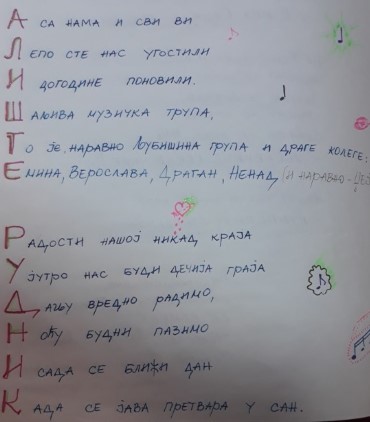 А СА НАМА И СВИ ВИ
ЛЕПО СТЕ НАС УГОСТИЛИ
И ДОГОДИНЕ ПОНОВИЛИ.
ШАЉИВА МУЗИЧКА ТРУПА,
ТО ЈЕ, НАРАВНО ЉУБИШИНА ГРУПА И ДРАГЕ КОЛЕГЕ:
ЕМИНА, ВЕРОСЛАВА, ДРАГАН, НЕНАД, (И НАРАВНО -
РАДОСТИ НАШОЈ НИКАД КРАЈА
УЈУТРО НАС БУДИ ДЕЧИЈА ГРАЈА
ДАЊУ ВРЕДНО РАДИМО,
НОЋУ БУДНИ ПАЗИМО
И САДА СЕ БЛИЖИ ДАН
КАДА СЕ ЈАВА ПРЕТВАРА У САН.